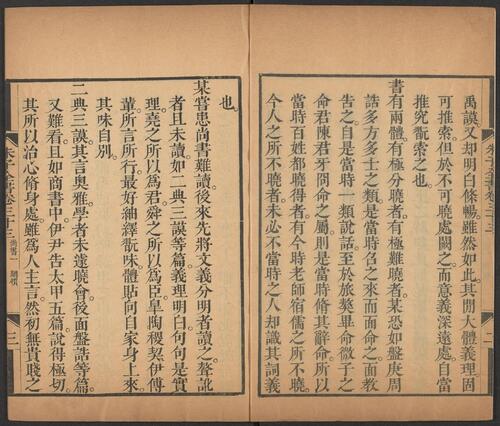 禹謨又却明白條暢。雖然如此。其閒大體義理固
可推索。但於不可曉處闕之。而意義深遠處。自當
推究翫索之也。
書有兩體。有極分曉者。有極難曉者。某恐如盤庚周
誥多方多士之類。是當時召之來而面命之。面教
告之。自是當時一類說話。至於旅獒畢命微子之
命君陳君牙冏命之屬。則是當時脩其辭命。所以
當時百姓都曉得者。有今時老師宿儒之所不曉。
今人之所不曉者。未必不當時之人却識其詞義
也。
某嘗患尚書難讀。後來先將文義分明者讀之。聱訛
者且未讀。如二典三謨等篇。義理明白。句句是實
理。堯之所以為君。舜之所以為臣。皐陶稷契伊傅
輩所言所行。最好紬繹翫味。體貼向自家身上來。
其味自別。
二典三謨。其言奧雅。學者未遽曉會。後面盤誥等篇
又難看。且如商書中。伊尹告太甲五篇。說得極切。
其所以治心脩身處。雖為人主言。然初無貴賤之